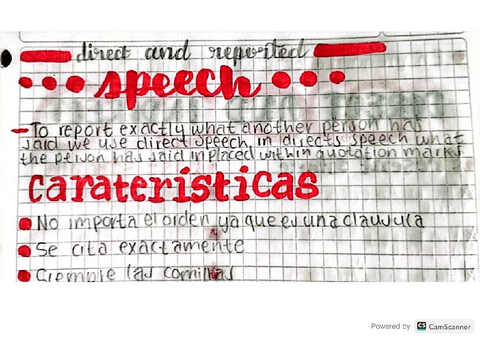 direct and reported
speech
- To report exactly what another person has
said we use direct speech, in directs speech what
the person has said in placed within quotation marks
Carateristicas
No importa el orden ya que es una clausula
Se cita exactamente
Ciempie las comillas
Powered by CS CamScanner